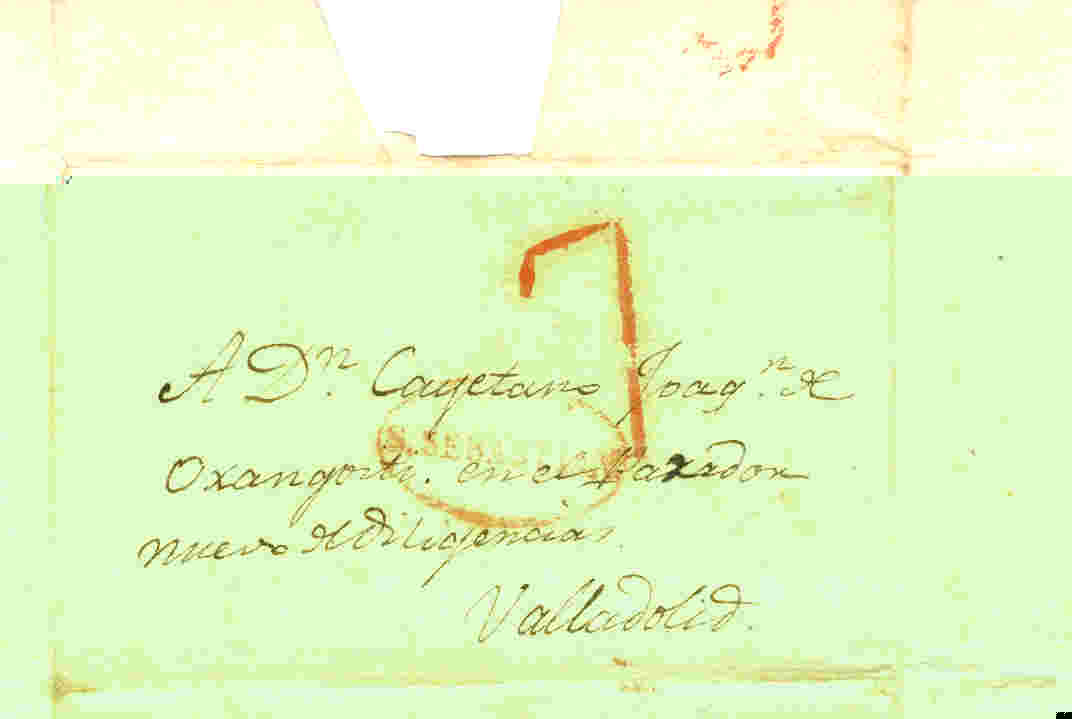 A Dn. Cayetano Joaqn. de
S. SEBASTIAN
Oxangorti. en el Parador
nuevo de diligencias
Valladolid.